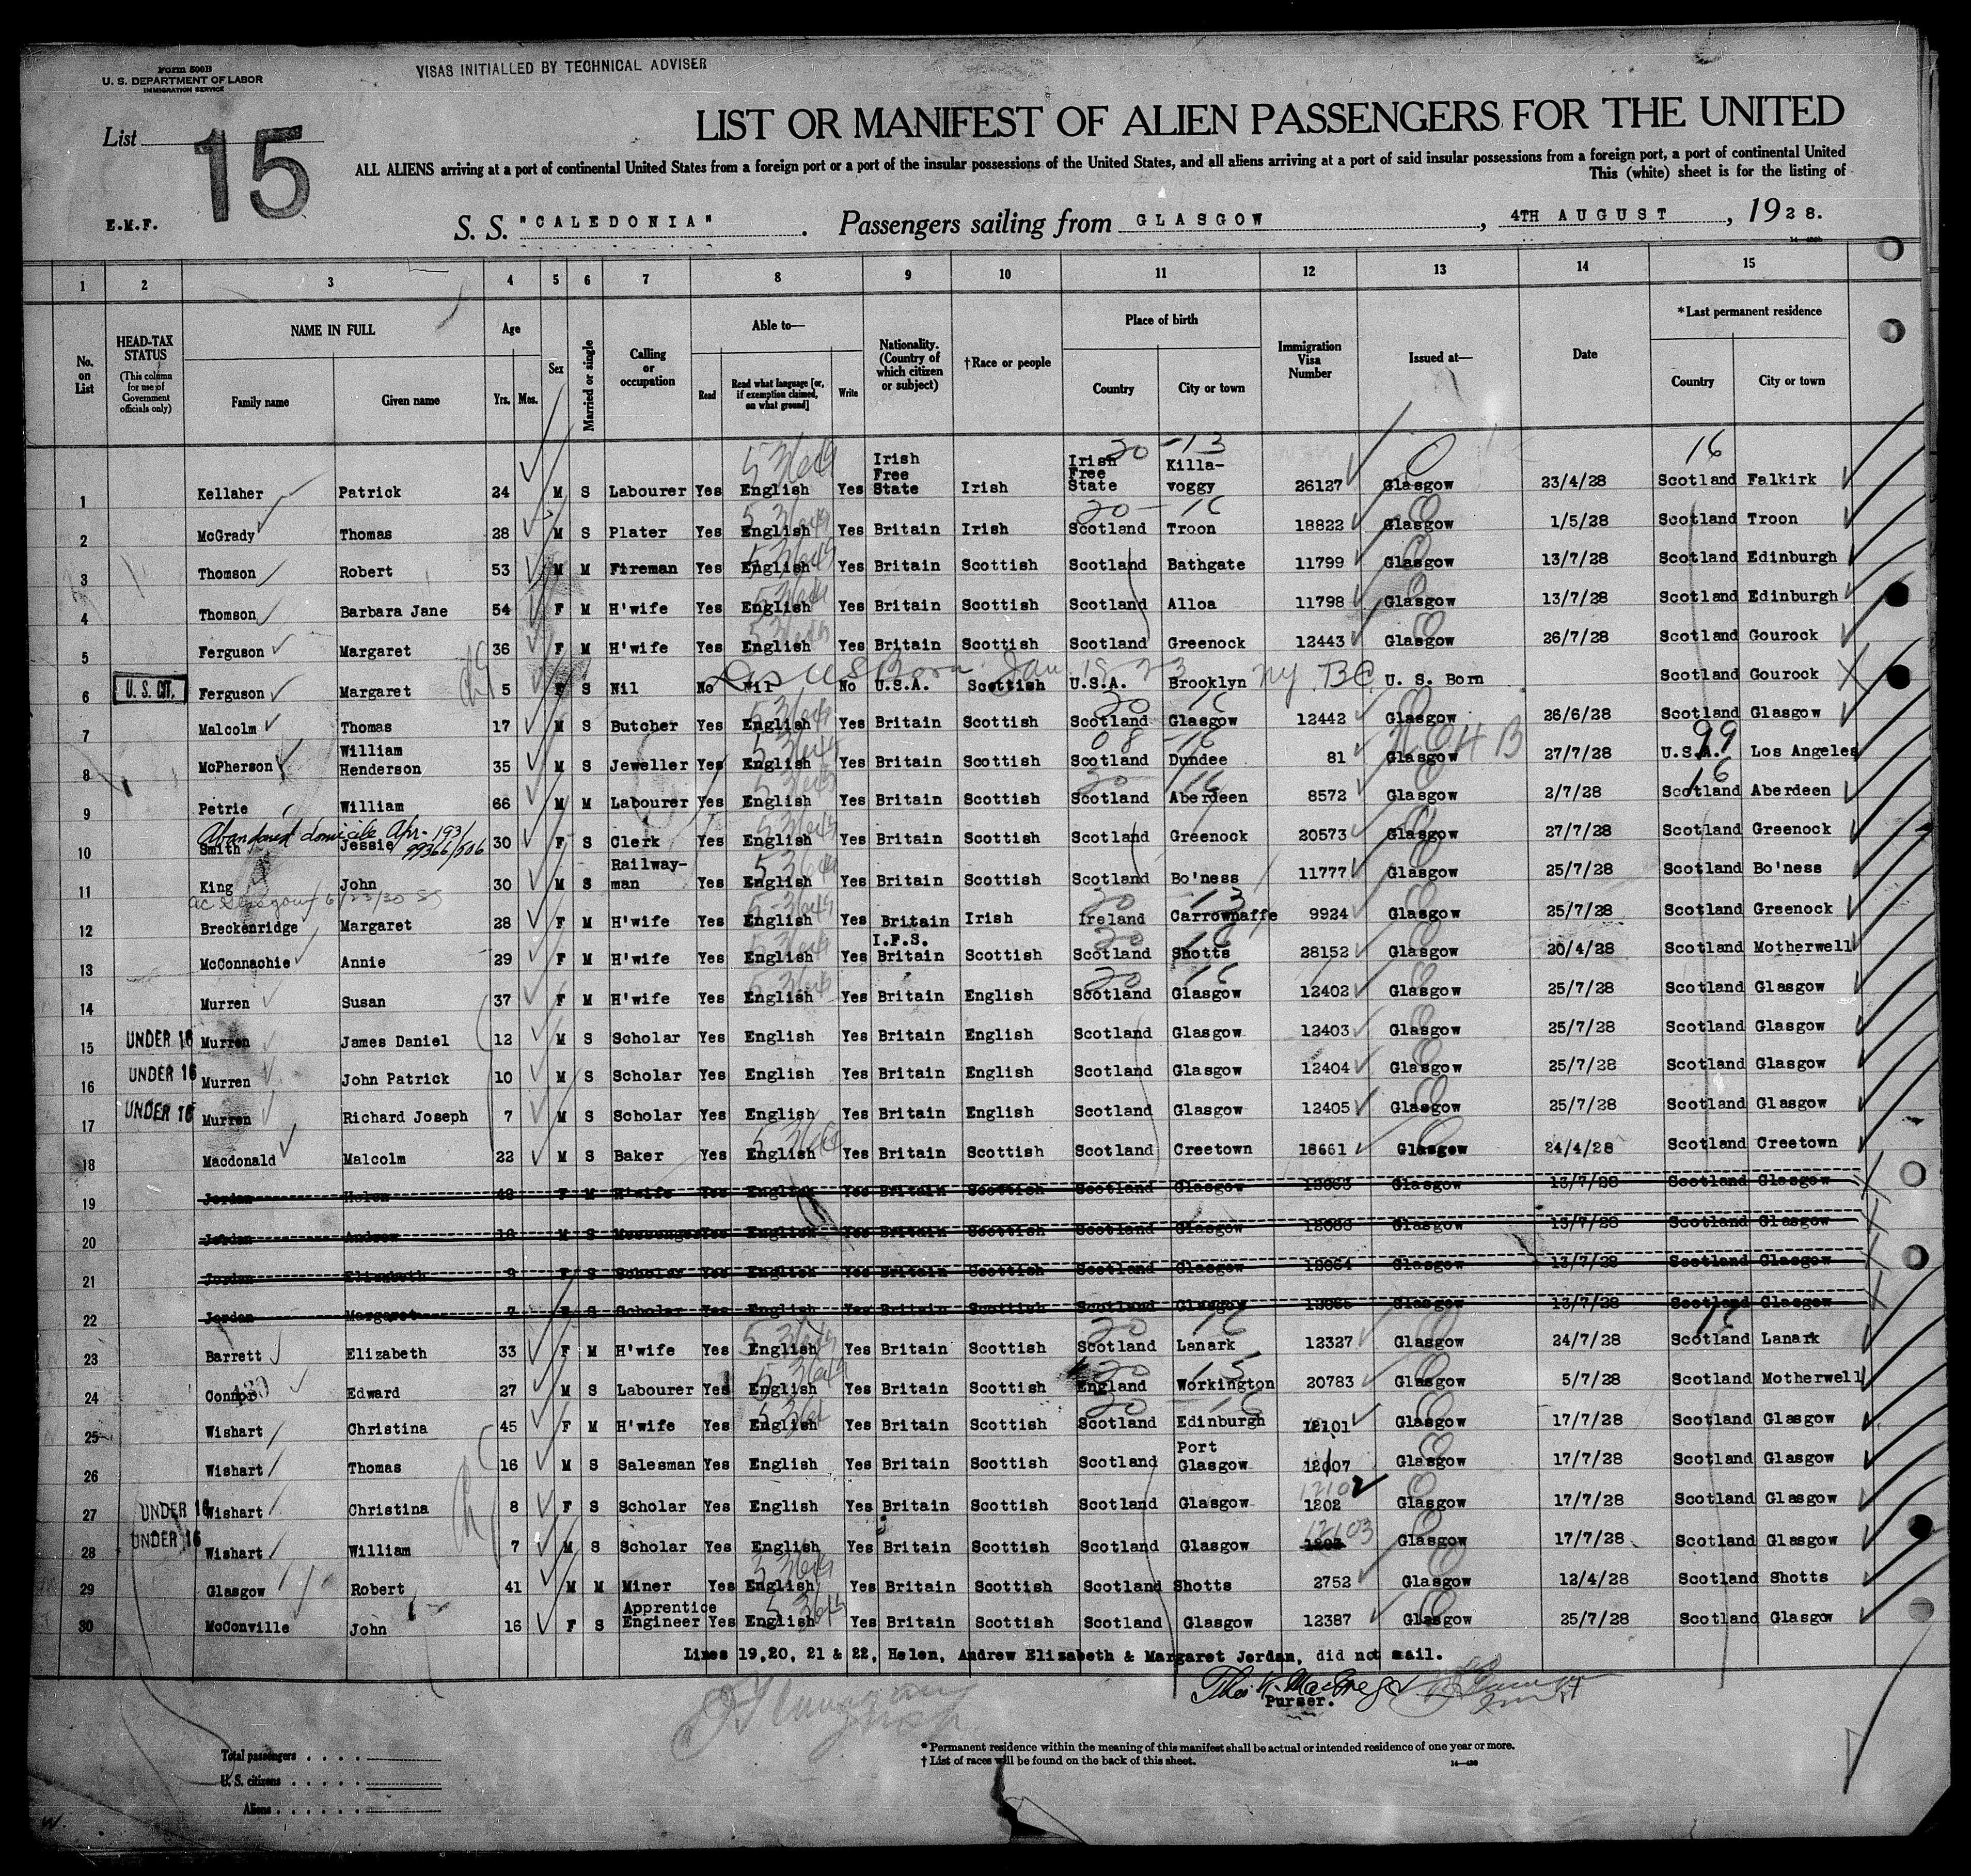 Form 500B
U. S. DEPARTMENT OF LABOR
IMMIGRATION SERVICE
VISAS INITIALLED BY TECHNICAL ADVISER
List 15
LIST OR MANIFEST OF ALIEN PASSENGERS FOR THE UNITED
ALL ALIENS arriving at a port of continental United States from a foreign port or a port of the insular possessions of the United States, and all aliens arriving at a port of said insular possessions from a foreign port, a port of continental United
This (white) sheet is for the listing of
E.M.F.
S. S. "CALEDONIA". Passengers sailing from GLASGOW, 4TH AUGUST, 1928.
1 2 3 4 5 6 7 8 9 10 11 12 13 14 15
No. on List
HEAD-TAX STATUS (This column for use of Government officials only)
NAME IN FULL Family name Given name
Age Yrs. Mos.
Sex
Married or single
Calling or occupation
Able to— Read Read what language [or, if exemption claimed, on what ground] Write
Nationality. (Country of which citizen or subject)
†Race or people
Place of birth Country City or town
Immigration Visa Number
Issued at—
Date
*Last permanent residence Country City or town
20 -13 16
1 Kellaher Patrick 24 M S Labourer Yes English Yes Irish Free State Irish Irish Free State Killa-voggy 26127 Glasgow 23/4/28 Scotland Falkirk
20 - 16
2 McGrady Thomas 28 M S Plater Yes English Yes Britain Irish Scotland Troon 18822 Glasgow 1/5/28 Scotland Troon
3 Thomson Robert 53 M M Fireman Yes English Yes Britain Scottish Scotland Bathgate 11799 Glasgow 13/7/28 Scotland Edinburgh
4 Thomson Barbara Jane 54 F M H'wife Yes English Yes Britain Scottish Scotland Alloa 11798 Glasgow 13/7/28 Scotland Edinburgh
5 Ferguson Margaret 36 F M H'wife Yes English Yes Britain Scottish Scotland Greenock 12443 Glasgow 26/7/28 Scotland Gourock
US Born Jan 15 23 NY BC
6 U. S. CIT. Ferguson Margaret 5 F S Nil No Nil No U.S.A. Scottish U.S.A. Brooklyn U. S. Born Scotland Gourock
20 16
7 Malcolm Thomas 17 M S Butcher Yes English Yes Britain Scottish Scotland Glasgow 12442 Glasgow 26/6/28 Scotland Glasgow
08 -16 99
8 McPherson William Henderson 35 M S Jeweller Yes English Yes Britain Scottish Scotland Dundee 81 Glasgow 27/7/28 U.S.A. Los Angeles
20 16 16
9 Petrie William 66 M M Labourer Yes English Yes Britain Scottish Scotland Aberdeen 8572 Glasgow 2/7/28 Scotland Aberdeen
Abandoned domicile Apr- 1931 99366/506
10 Smith Jessie 30 F S Clerk Yes English Yes Britain Scottish Scotland Greenock 20573 Glasgow 27/7/28 Scotland Greenock
11 King John 30 M S Railway-man Yes English Yes Britain Scottish Scotland Bo'ness 11777 Glasgow 25/7/28 Scotland Bo'ness
6/23/30
20 13
12 Breckenridge Margaret 28 F M H'wife Yes English Yes Britain Irish Ireland Carrownaffe 9924 Glasgow 25/7/28 Scotland Greenock
20 16
13 McConnachie Annie 29 F M H'wife Yes English Yes I.F.S. Britain Scottish Scotland Shotts 28152 Glasgow 20/4/28 Scotland Motherwell
20 16
14 Murren Susan 37 F M H'wife Yes English Yes Britain English Scotland Glasgow 12402 Glasgow 25/7/28 Scotland Glasgow
15 UNDER 16 Murren James Daniel 12 M S Scholar Yes English Yes Britain English Scotland Glasgow 12403 Glasgow 25/7/28 Scotland Glasgow
16 UNDER 16 Murren John Patrick 10 M S Scholar Yes English Yes Britain English Scotland Glasgow 12404 Glasgow 25/7/28 Scotland Glasgow
17 UNDER 16 Murren Richard Joseph 7 M S Scholar Yes English Yes Britain English Scotland Glasgow 12405 Glasgow 25/7/28 Scotland Glasgow
18 Macdonald Malcolm 22 M S Baker Yes English Yes Britain Scottish Scotland Creetown 18661 Glasgow 24/4/28 Scotland Creetown
19 Jordan Helen F M H'wife Yes English Yes Britain Scottish Scotland Glasgow Glasgow 13/7/28 Scotland Glasgow
20 Jordan Andrew M S Messenger Yes English Yes Britain Scottish Scotland Glasgow Glasgow 13/7/28 Scotland Glasgow
21 Jordan Elizabeth 9 F S Scholar Yes English Yes Britain Scottish Scotland Glasgow Glasgow 13/7/28 Scotland Glasgow
22 Jordan Margaret 7 F S Scholar Yes English Yes Britain Scottish Scotland Glasgow Glasgow 13/7/28 Scotland Glasgow
20 16 16
23 Barrett Elizabeth 33 F M H'wife Yes English Yes Britain Scottish Scotland Lanark 12327 Glasgow 24/7/28 Scotland Lanark
20 15
24 Connor Edward 27 M S Labourer Yes English Yes Britain Scottish England Workington 20783 Glasgow 5/7/28 Scotland Motherwell
20 - 16
25 Wishart Christina 45 F M H'wife Yes English Yes Britain Scottish Scotland Edinburgh 12101 Glasgow 17/7/28 Scotland Glasgow
26 Wishart Thomas 16 M S Salesman Yes English Yes Britain Scottish Scotland Port Glasgow 12007 Glasgow 17/7/28 Scotland Glasgow
12102
27 UNDER 16 Wishart Christina 8 F S Scholar Yes English Yes Britain Scottish Scotland Glasgow 1202 Glasgow 17/7/28 Scotland Glasgow
12103
28 UNDER 16 Wishart William 7 M S Scholar Yes English Yes Britain Scottish Scotland Glasgow 1203 Glasgow 17/7/28 Scotland Glasgow
29 Glasgow Robert 41 M M Miner Yes English Yes Britain Scottish Scotland Shotts 2752 Glasgow 12/4/28 Scotland Shotts
30 McConville John 16 F S Apprentice Engineer Yes English Yes Britain Scottish Scotland Glasgow 12387 Glasgow 25/7/28 Scotland Glasgow
Lines 19,20, 21 & 22, Helen, Andrew Elizabeth & Margaret Jordan, did not sail.
Thos K. MacGregor
Purser.
Total passengers . . . .
U. S. citizens . . . . .
Aliens . . . . . .
* Permanent residence within the meaning of this manifest shall be actual or intended residence of one year or more.
† List of races will be found on the back of this sheet.
W.